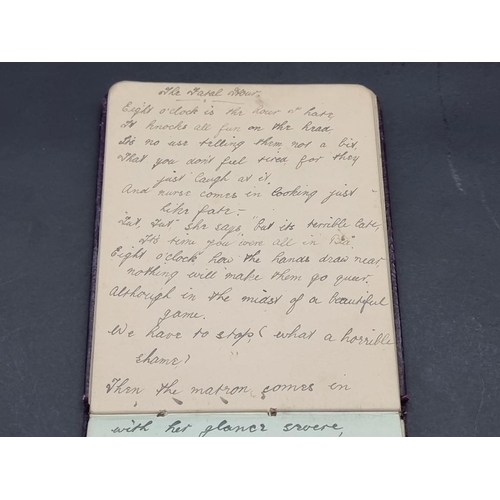 The Fatal Hour.
Eight o'clock is the hour I hate,
It knocks all fun on the head
It's no use telling them not a bit,
That you don't feel tired for they
just laugh at it.
And nurse comes in looking just
like fate.
"Tut, Tut" she says, but its terrible late,
"It's time you were all in Bed."
Eight o'clock how the hands draw near,
nothing will make them go queer.
Although in the midst of a beautiful
game.
We have to stop! (what a horrible
shame)
Then the matron comes in
with her glance severe,